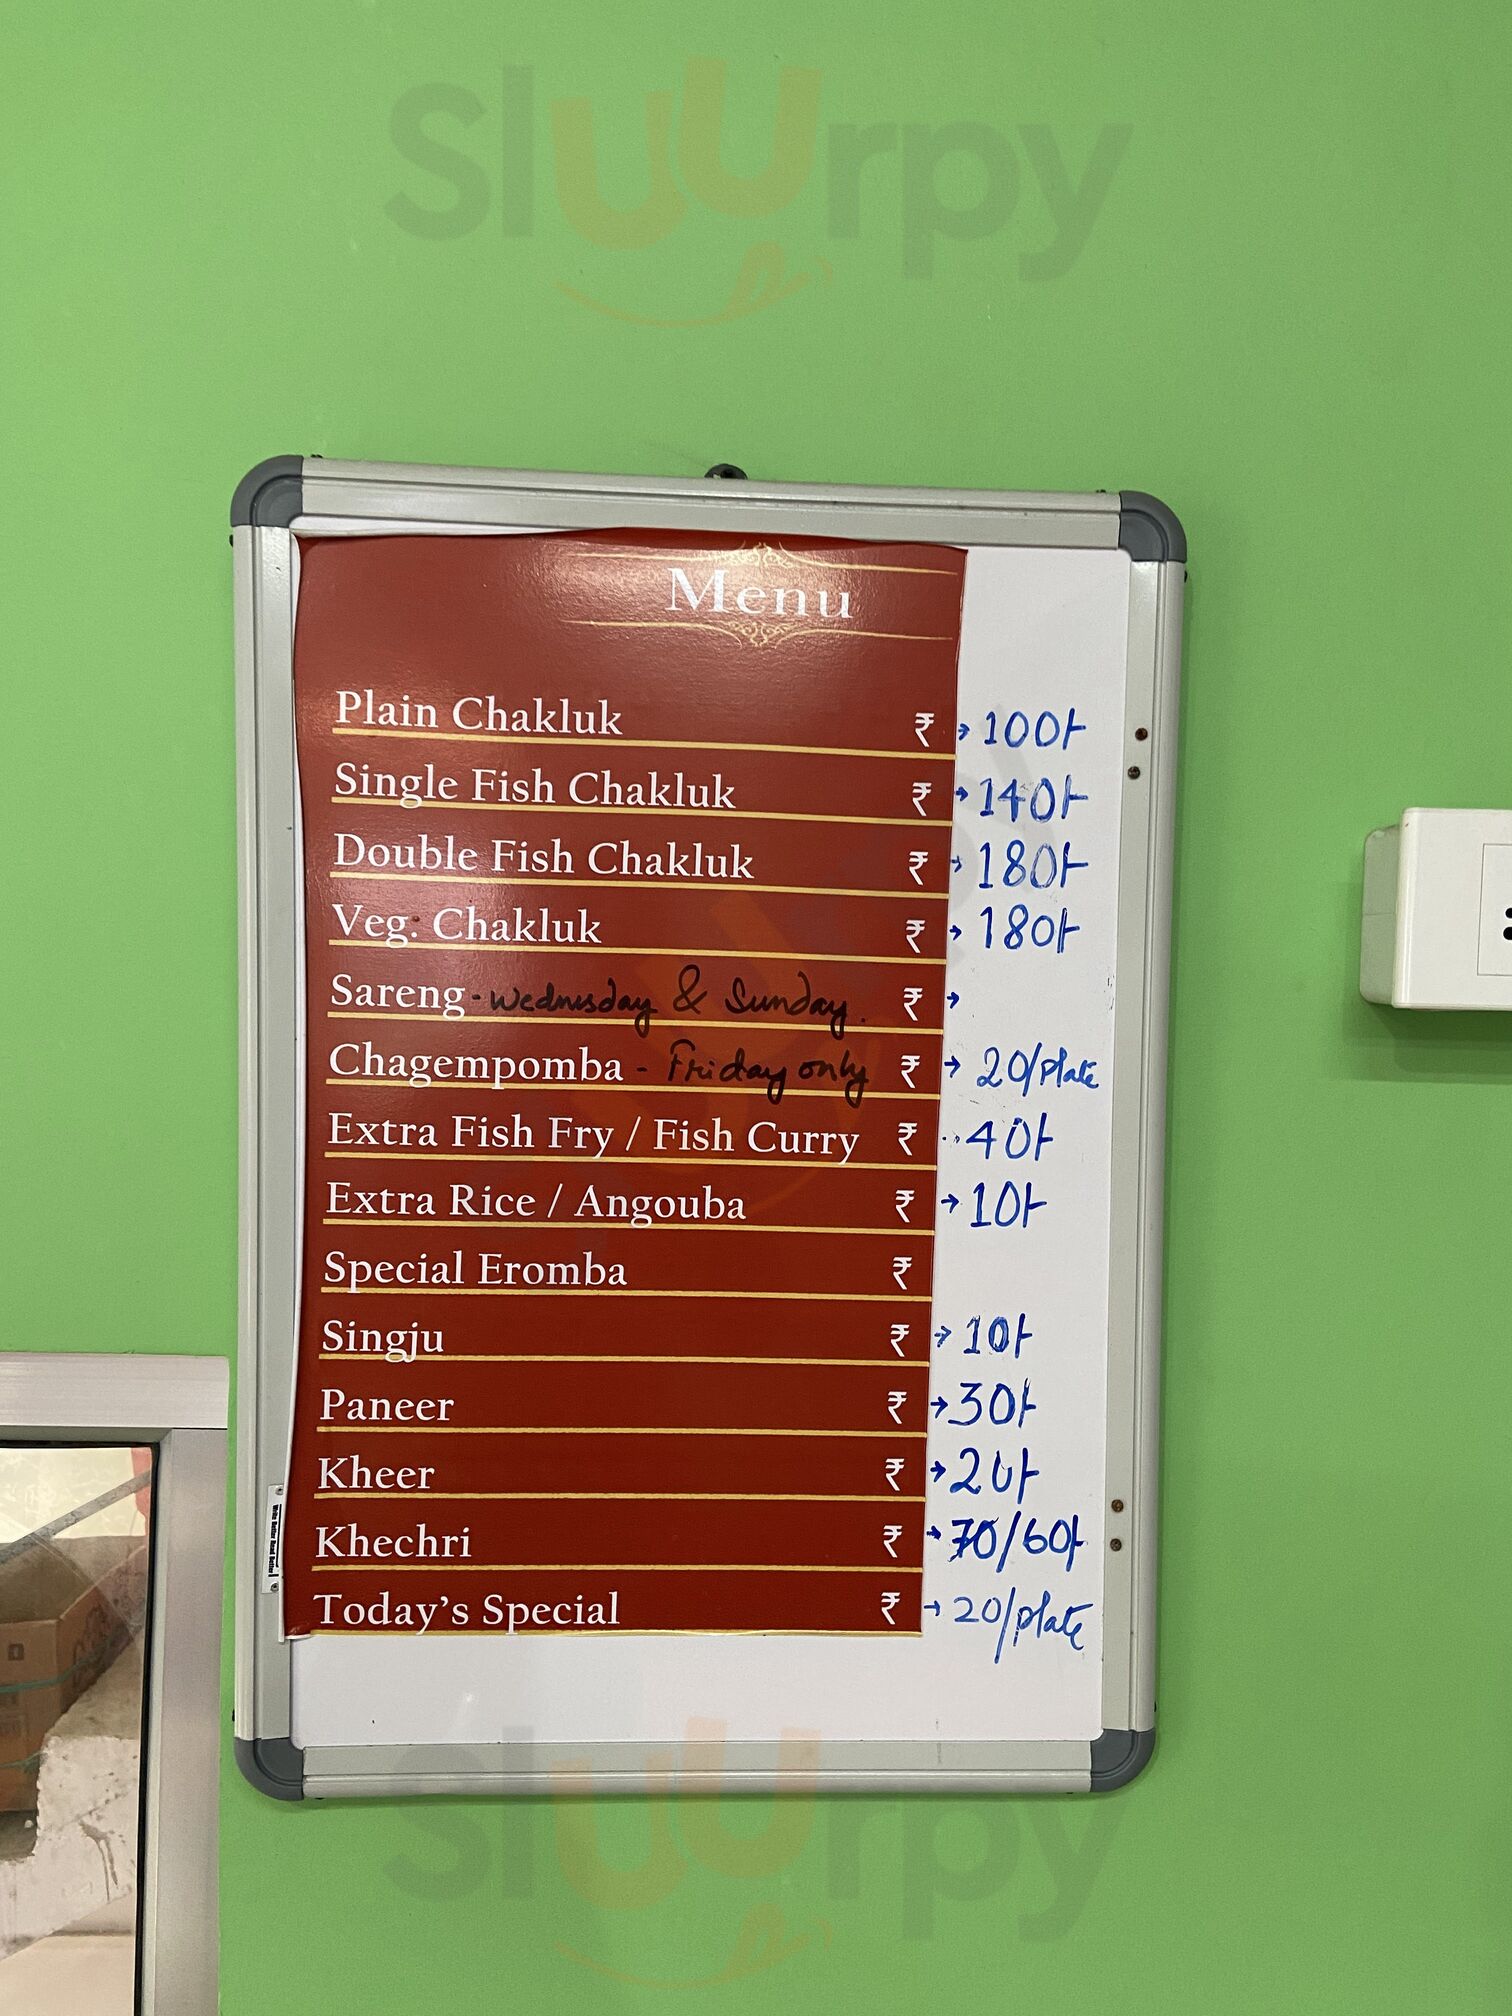 Sluurpy
Menu
Plain Chakluk ₹ → 100/-
Single Fish Chakluk ₹ → 140/-
Double Fish Chakluk ₹ → 180/-
Veg. Chakluk ₹ → 180/-
Sareng - Wednesday & Sunday. ₹ →
Chagempomba - Friday only ₹ → 20/plate
Extra Fish Fry / Fish Curry ₹ 40/-
Extra Rice / Angouba ₹ → 10/-
Special Eromba ₹
Singju ₹ → 10/-
Paneer ₹ → 30/-
Kheer ₹ → 20/-
Khechri ₹ → 70/60/-
Today's Special ₹ → 20/plate
Write Better Read Better
Sluurpy